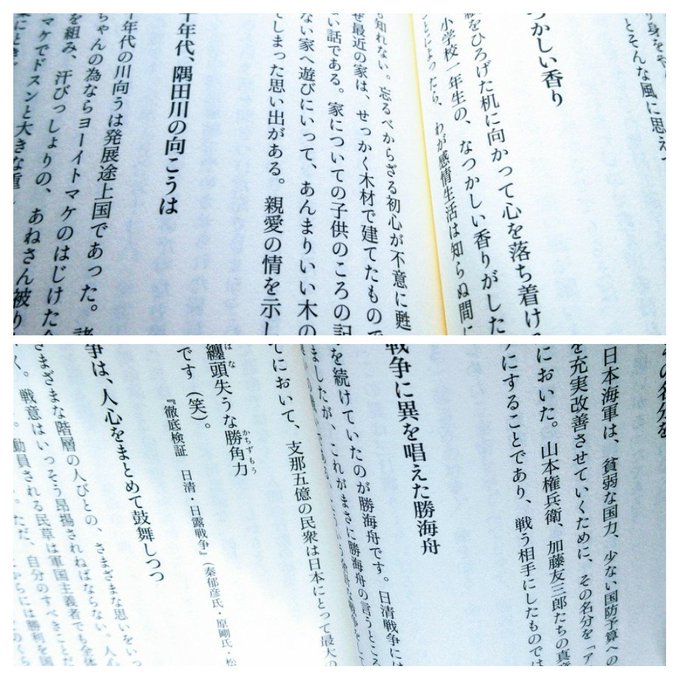 り身をや
とそんな風に思え
つかしい香り
をひろげた机に向かって心を落ち着け
小学校一年生の、なつかしい香りがした
ことによったら、わが感情生活は知らぬ間に
も知れない。忘るべからざる初心が不意に甦
ぜ最近の家は、せっかく木材で建てたもので
い話である。家についての子供のころの記
ない家へ遊びにいって、あんまりいい木の
てしまった思い出がある。親愛の情を示し
十年代、隅田川の向こうは
年代の川向うは発展途上国であった。諸
ちゃんの為ならヨーイトマケのはじけた
を組み、汗びっしょりの、あねさん被り
マケでドスンと大きな重
の名分を
日本海軍は、貧弱な国力、少ない国防予算への
を充実改善させていくために、その名分を「ア
においた。山本権兵衛、加藤友三郎たちの真意
うにすることであり、戦う相手にしたものでは
戦争に異を唱えた勝海舟
を続けていたのが勝海舟です。日清戦争には
ましたが、これがまさに勝海舟の言うところ
てにおいて、支那五億の民衆は日本にとって最大の
纏頭失うな勝角力
です（笑）。
『徹底検証　日清・日露戦争』（秦郁彦氏・原剛氏・松
争は、人心をまとめて鼓舞しつつ
さまざまな階層の人びとの、さまざまな思いをいっ
く。戦意はいっそう昂揚されねばならない。人心
動員される民草は軍国主義者でも全体
ただ、自分のすべきことだ